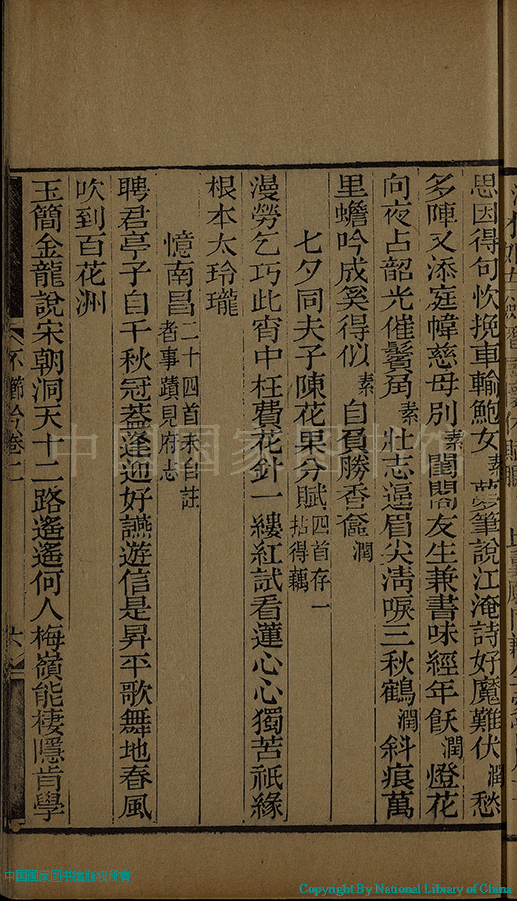 思因得句忺挽車輸鮑女素夢筆說江淹詩好魔難伏潤愁
多陣又添庭幃慈母別素閨閤友生兼書味經年飫潤燈花
向夜占韶光催鬢角素壯志逼眉尖淸唳三秋鶴潤斜痕萬
里蟾吟成奚得似素自負勝香奩潤
七夕同夫子陳花果分賦四首存一拈得藕
漫勞乞巧此宵中枉費花針一縷紅試看蓮心心獨苦祇緣
根本太玲瓏
憶南昌二十四首未自註者事蹟見府志
聘君亭子自千秋冠蓋逢迎好讌遊信是昇平歌舞地春風
吹到百花洲
玉簡金龍說宋朝洞天十二路遙遙何人梅嶺能棲隱肯學
不櫛吟卷二
六
中国国家图书馆
中国国家图书馆版权所有
Copyright By National Library of China